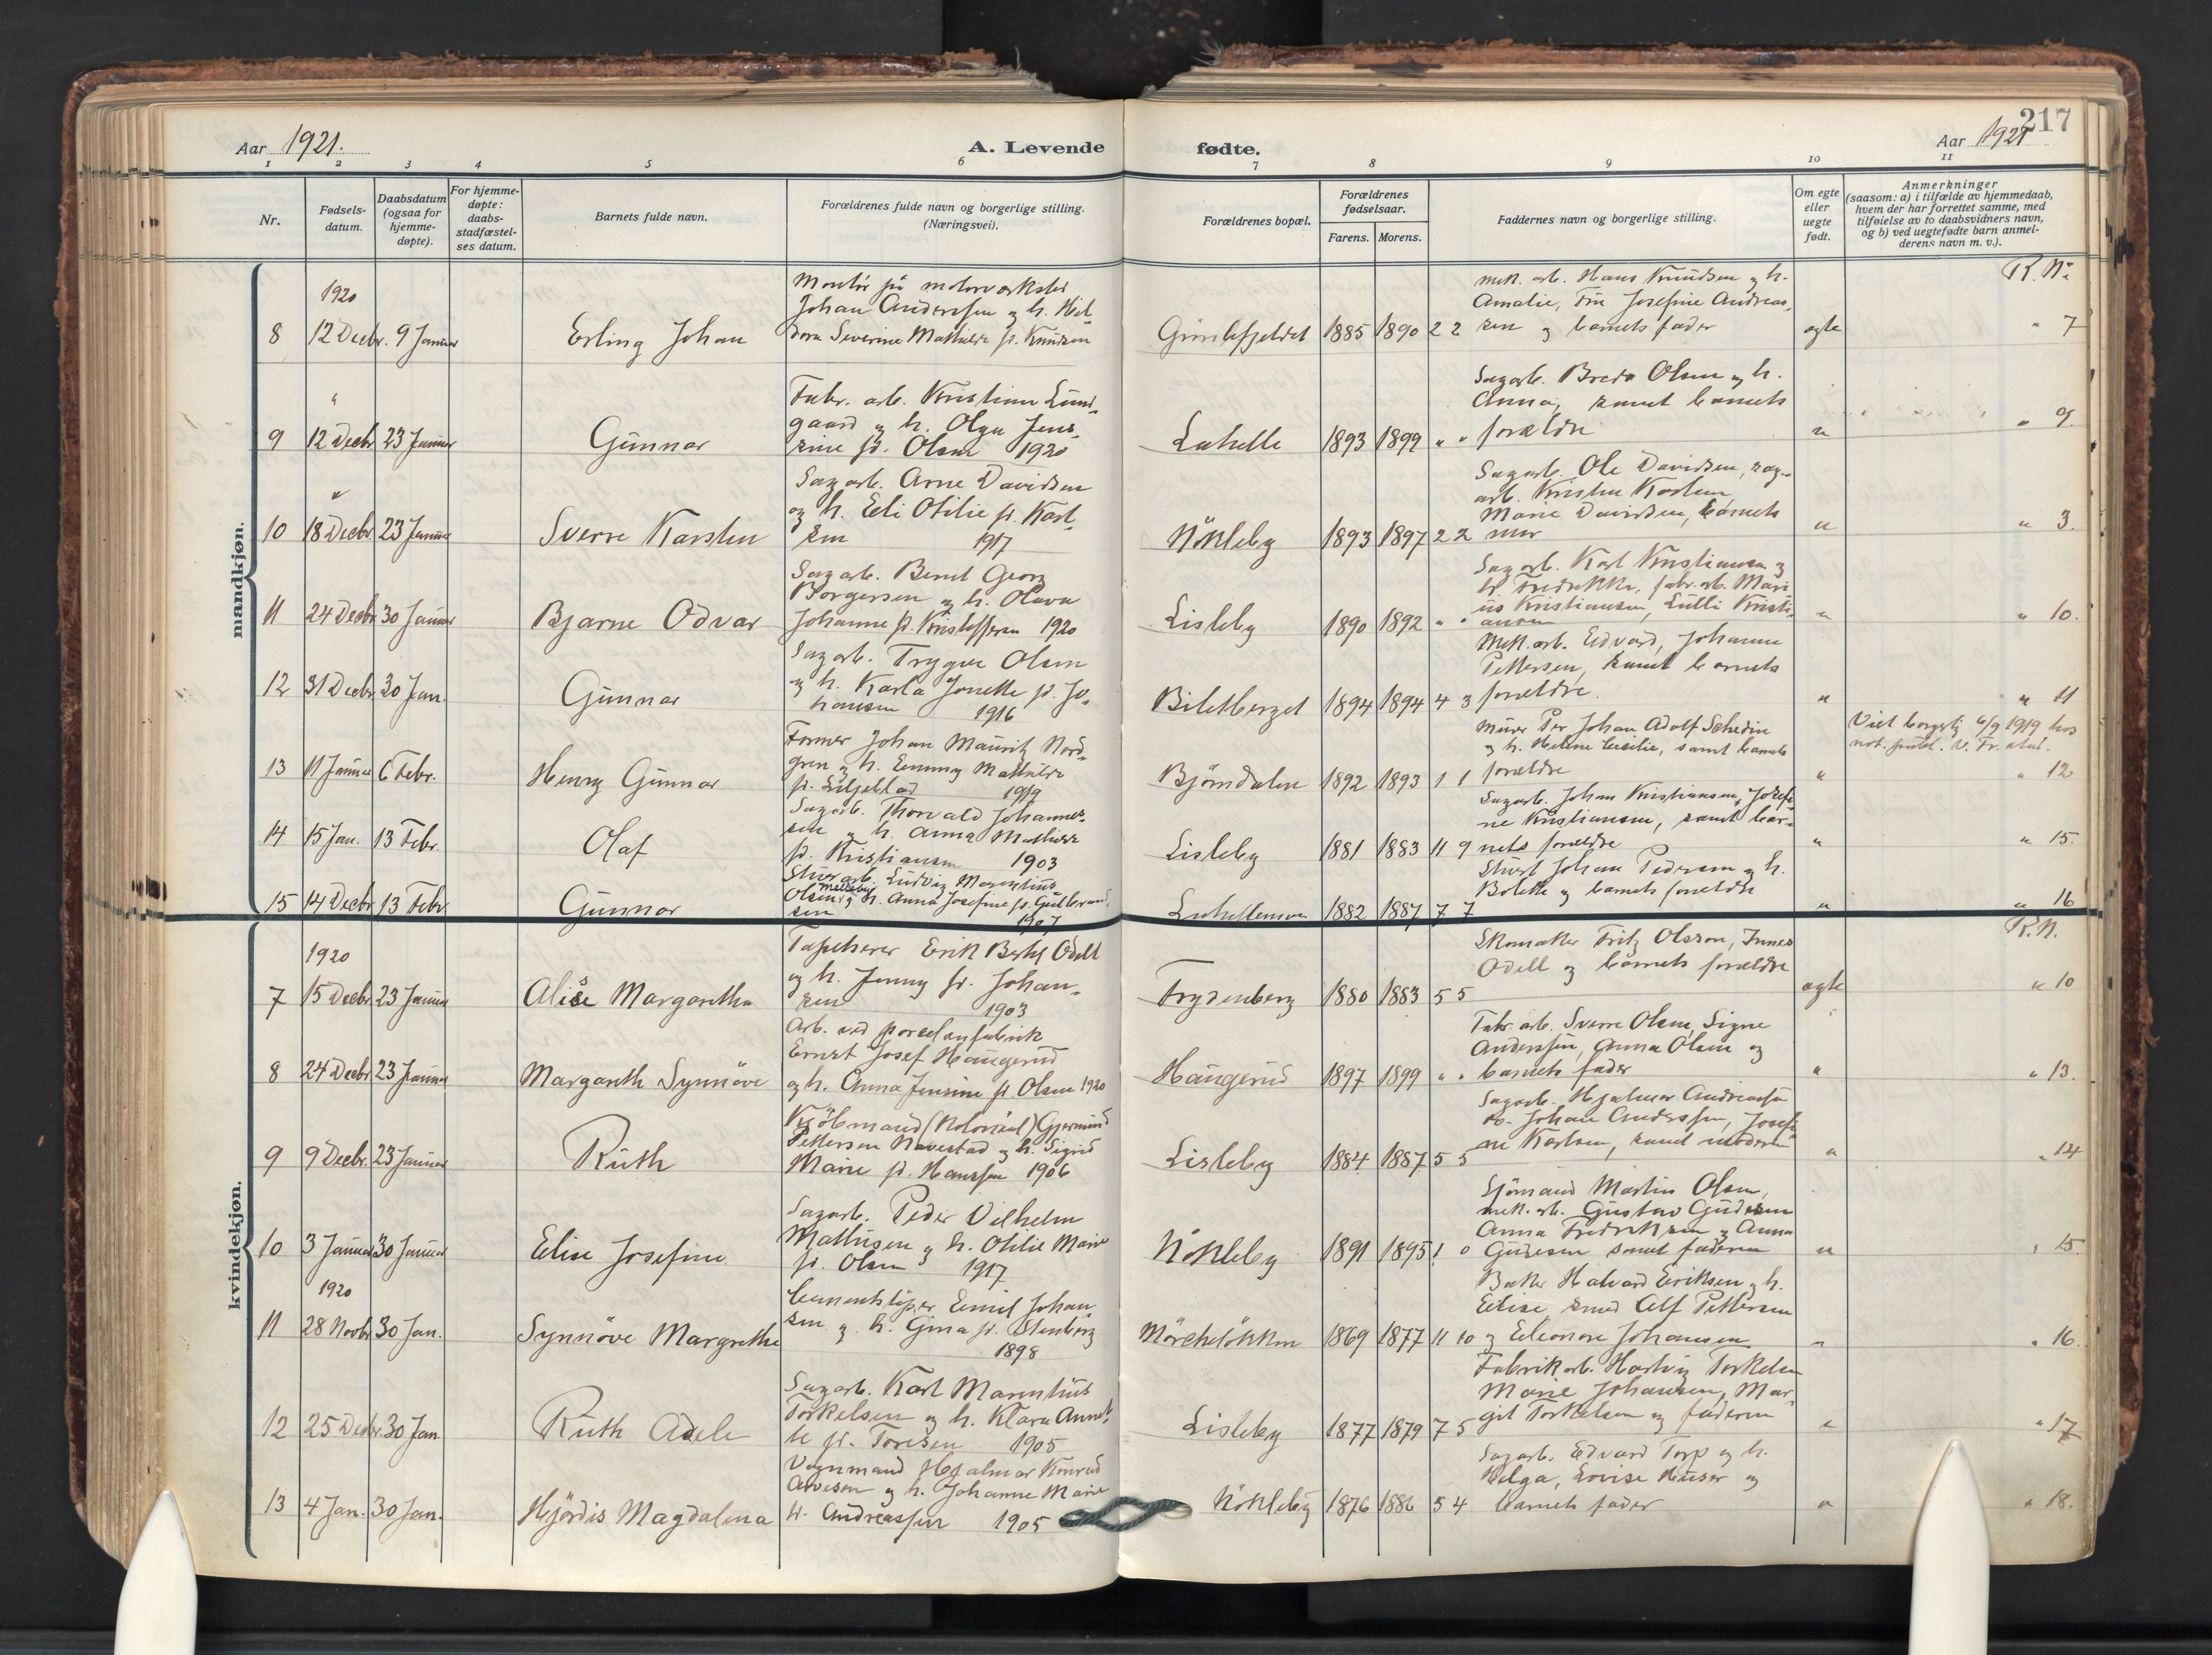 Aar 1921.
A. Levende
fødte.
217
Aar 1921
1 2 3 4 5 6 7 8 9 10 11
Nr.
Fødsels-
datum.
Daabsdatum
(ogsaa for
hjemme-
døpte).
For hjemme-
døpte:
daabs-
stadfæstel-
ses datum.
Barnets fulde navn.
Forældrenes fulde navn og borgerlige stilling.
(Næringsvei).
Forældrenes bopæl.
Forældrenes
fødselsaar.
Farens. Morens.
Faddernes navn og borgerlige stilling.
Om egte
eller
uegte
født.
Anmerkninger
(saasom: a) i tilfælde av hjemmedaab,
hvem der har forrettet samme, med
tilføielse av to daabsvidners navn,
og b) ved uegtefødte barn anmel-
derens navn m. v.).
mandkjøn.
1920
8 12 Decbr. 9 Januar Erling Johan
Montør på motorværksted
Johan Anderssen og h. Hel-
dora Severine Mathilde f. Knudsen
Gimlefjeldet 1885 1890 2 2
mek. arb. Hans Knudsen og h.
Amalie, Frk Josefine Andreas-
sen og barnets fader
egte
R. No
" 7
"
9 12 Decbr 23 Januar Gunnar
Fabr. arb. Kristian Lund-
gaard og h. Olga Jens-
sine f. Olsen 1920
Lahelle 1893 1899 " "
Sagarb. Breda Olsen og h.
Anna, samt barnets
forældre
" " 9.
"
10 18 Decbr 23 Januar Sverre Karsten
Sagarb. Arne Davidsen
og h. Eli Otilie f. Karl-
sen 1917
Nökleby 1893 1897 2 2
Sagarb. Ole Davidsen, sag-
arb. Kristen Karlsen,
Marie Davidsen, barnets
mor
" " 3.
11 24 Decbr 30 Januar Bjarne Odvar
Sagarb. Bernt Georg
Borgersen og h. Olava
Johanne f. Kristoffersen 1920
Lisleby 1890 1892 " "
Sagarb. Karl Kristiansen og
h. Fredrikke, fabr. arb. Mari
us Kristiansen, Lulli Kristi-
ansen
" " 10.
12 31 Decbr 30 Jan. Gunnar
Sagarb. Trygve Olsen
og h. Karla Jonette f. Jo-
hansen 1916
Biletberget 1894 1894 4 3
Mek. arb. Edvard, Johanne
Pettersen, samt barnets
forældre.
" " 11
13 11 Januar 6 Febr. Henry Gunnar
Former Johan Mauritz Nord-
gren og h. Emmy Mathilde
f. Liljeblad 1919
Bjørndalen 1892 1893 1 1
Murer Per Johan Adolf Schedin
og h. Helene Cecilie, samt barnets
forældre
Viet borgerlig 6/9 1919 hos
not. publ. v. Fr.stad.
" " 12
14 15 Jan. 13 Febr. Olaf
Sagarb. Thorvald Johannes-
sen og h. Anna Mathilde
f. Kristiansen 1903
Lisleby 1881 1883 11 9
Sagarb. Johan Kristiansen, Josefi-
ne Kristiansen, samt bar-
nets forældre
" " 15.
15 14 Decbr 13 Febr Gunnar
Stuerarb. Ludvig Marentius
Olsen Melleby og h. Anna Josefine f. Gulbrand-
sen 1907
Lahellemoen 1882 1887 7 7
Stuert Johan Pedersen og h.
Bolette og barnets forældre
" " 16
kvindekjøn.
1920
7 15 Decbr 23 Januar Alise Margaretha
Tapetserer Erik Bertil Odell
og h. Jenny f. Johan-
sen 1903
Frydenberg 1880 1883 5 5
Skomaker Fritz Olsson, Innes
Odell og barnets forældre
egte
R. N.
" 10
8 24 Decbr 23 Januar Margareth Synnöve
Arb. ved porcelænfabrik
Ernst Josef Haugerud
og h. Anna Jensine f. Olsen 1920
Haugerud 1897 1899 " "
Fabr. arb. Sverre Olsen, Signe
Anderssen, Anna Olsen og
barnets fader
" " 13.
9 9 Decbr. 23 Januar Ruth
Kjöbmand (Kolonial) Gjermund
Pettersen Navestad og h. Sigrid
Marie f. Hanssen 1906
Lisleby 1884 1887 5 5
Sagarb. Hjalmar Andreassen
Johan Anderssen, Josefi-
ne Karlsen, samt moderen
" " 14
10 3 Januar 30 Januar Elise Josefine
Sagarb. Peder Vilhelm
Mathisen og h. Otilie Marie
f. Olsen 1917
Nökleby 1891 1895 1 0
Sjömand Martin Olsen,
mek. arb. Gustav Gudesen
Anna Fredriksen og Anna
Gudesen samt faderen
" " 15.
1920
11 28 Novbr 30 Jan. Synnöve Margrethe
Cementstøper Emil Johan
sen og h. Gina f. Stenberg
1898
Mörcheløkken 1869 1877 11 10
Baker Halvard Eriksen og h.
Elise, smed Alf Pettersen
og Eleonore Johansen
" " 16.
12 25 Decbr. 30 Jan Ruth Adele
Sagarb. Karl Marentius
Torkelsen og h. Klara Annet-
te f. Toresen 1905
Lisleby 1877 1879 7 5
Fabrikarb. Hartvig Torkelsen
Marie Johansen, Mar-
git Torkelsen og faderen
" " 17
13 4 Jan. 30 Jan. Hjördis Magdalena
Vognmand Hjalmar Konrad
Arvesen og h. Johanne Marie
f. Andreassen 1905
Nökleby 1876 1886 5 4
Sagarb. Edvard Torp og h.
Helga, Lovise Huser og
barnets fader
" " 18.